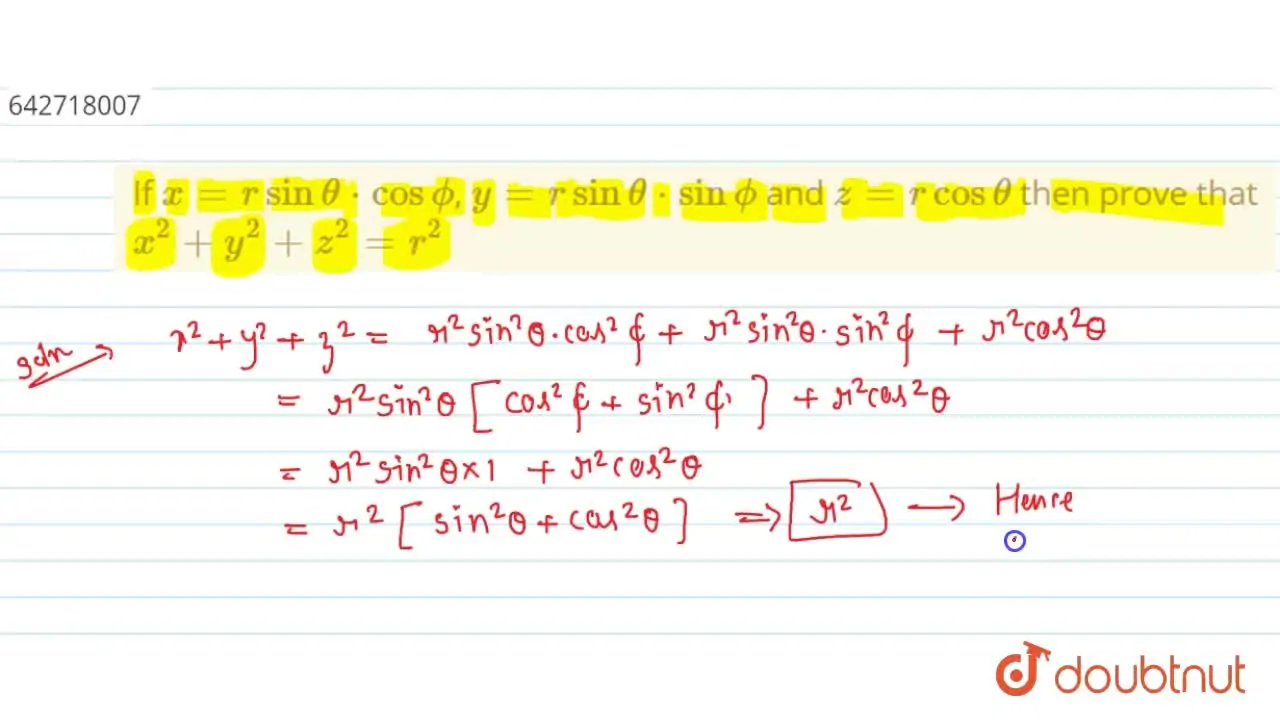 642718007
If x = r sin θ · cos ϕ, y = r sin θ · sin ϕ and z = r cos θ then prove that
x² + y² + z² = r²
x² + y² + z² = r² sin² θ · cos² ϕ + r² sin² θ · sin² ϕ + r² cos² θ
soln →
= r² sin² θ [ cos² ϕ + sin² ϕ ] + r² cos² θ
= r² sin² θ × 1 + r² cos² θ
= r² [ sin² θ + cos² θ ] ⇒ r² → Hence
doubtnut